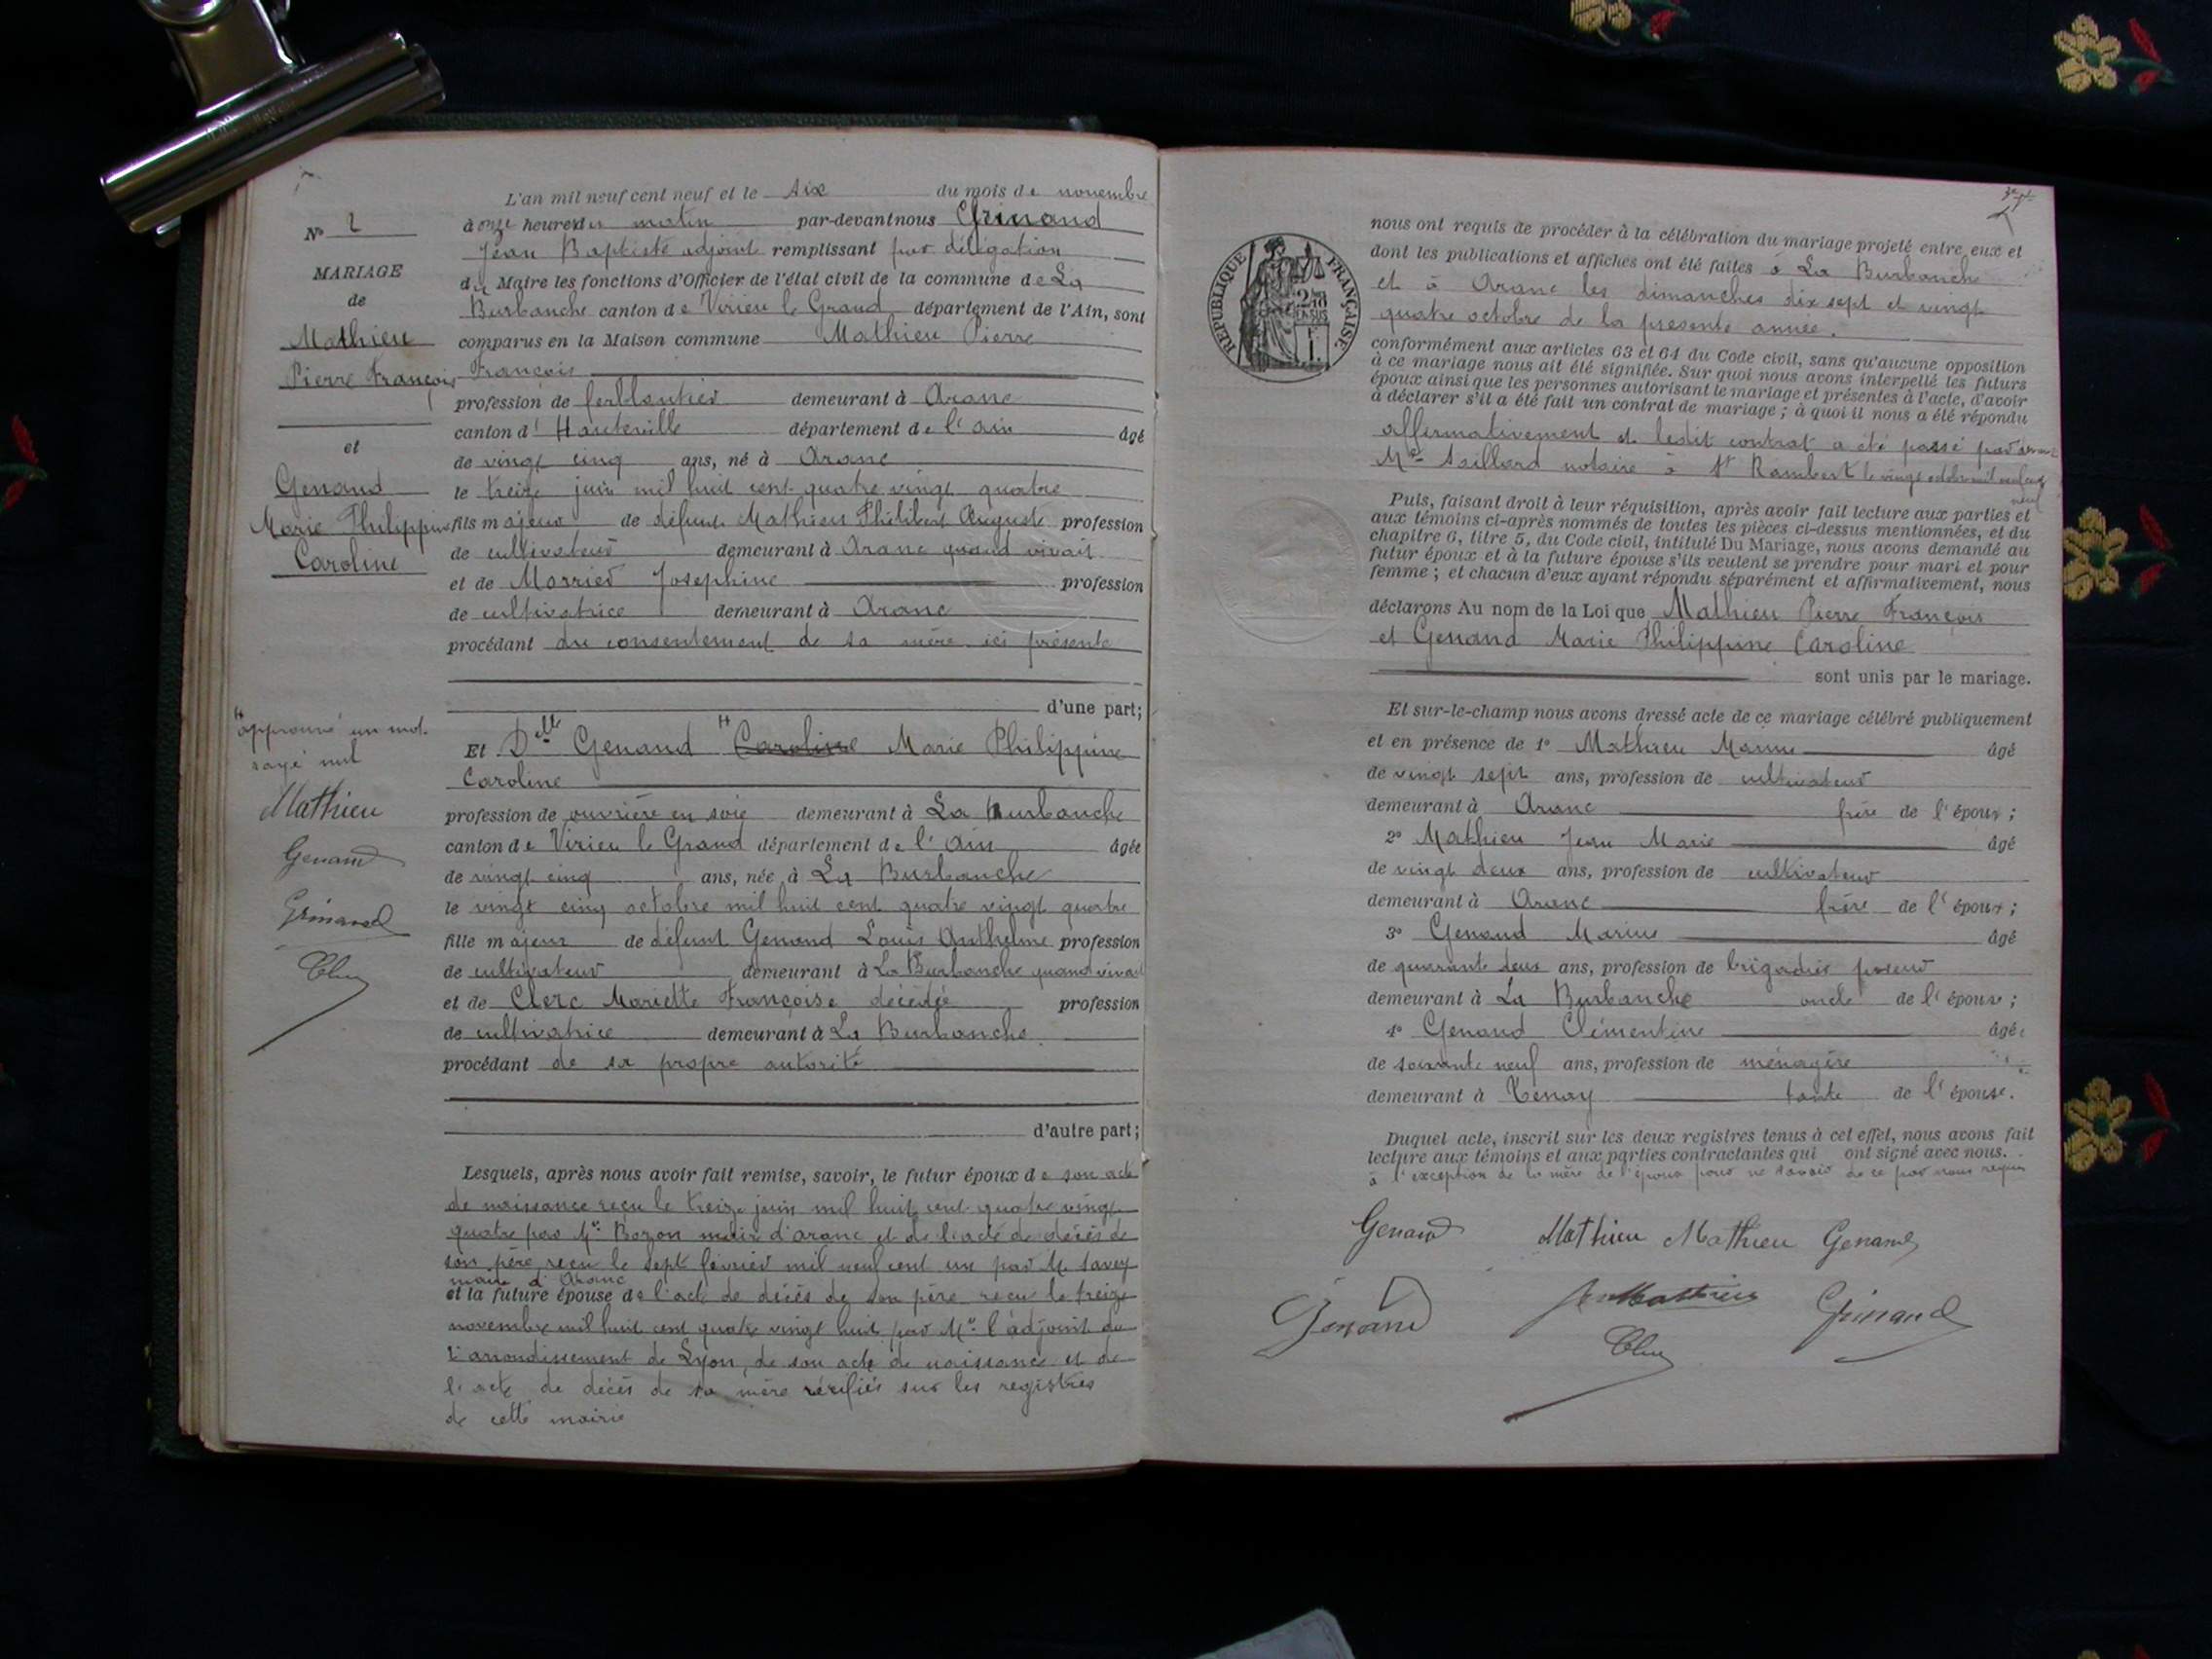 L'an mil neuf cent neuf et le six du mois de novembre
à onze heures du matin par-devant nous Grinand
Jean Baptiste adjoint remplissant par délégation
du Maire les fonctions d'Officier de l'état civil de la commune de La
Burbanche canton de Virieu le Grand département de l'Ain, sont
comparus en la Maison commune Mathieu Pierre
François
profession de ferblantier demeurant à Aranc
canton d' Hauteville département de l'ain âgé
de vingt cinq ans, né à Aranc
le treize juin mil huit cent quatre vingt quatre
fils majeur de défunt Mathieu Philibert Auguste profession
de cultivateur demeurant à Aranc quand vivait
et de Morrier Josephine profession
de cultivatrice demeurant à Aranc
procédant du consentement de sa mère ici présente
d'une part;
Et Dlle Genand Caroline Marie Philippine
Caroline
profession de ouvrière en soie demeurant à La Burbanche
canton de Virieu le Grand département de l'ain âgée
de vingt cinq ans, née à La Burbanche
le vingt cinq octobre mil huit cent quatre vingt quatre
fille majeur de défunt Genand Louis Anthelme profession
de cultivateur demeurant à La Burbanche quand vivait
et de Clerc Mariette Françoise décédée profession
de cultivatrice demeurant à La Burbanche
procédant de sa propre autorité
d'autre part;
Lesquels, après nous avoir fait remise, savoir, le futur époux de son acte
de naissance reçu le treize juin mil huit cent quatre vingt
quatre par Mr Bozon maire d'aranc et de l'acte de décès de
son père reçu le sept février mil neuf cent un par M. Savey
maire d'Aranc
et la future épouse de l'acte de décès de son père reçu le treize
novembre mil huit cent quatre vingt huit par Mr l'adjoint du
arrondissement de Lyon, de son acte de naissance et de
l'acte de décès de sa mère vérifiés sur les registres
de cette mairie
No 2
MARIAGE
de
Mathieu
Pierre François
et
Genand
Marie Philippine
Caroline
approuvé un mot
rayé nul
Mathieu
Genand
Grinand
nous ont requis de procéder à la célébration du mariage projeté entre eux et
dont les publications et affiches ont été faites à La Burbanche
et à Aranc les dimanches dix sept et vingt
quatre octobre de la présente année.
conformément aux articles 63 et 64 du Code civil, sans qu'aucune opposition
à ce mariage nous ait été signifiée. Sur quoi nous avons interpellé les futurs
époux ainsi que les personnes autorisant le mariage et présentes à l'acte, d'avoir
à déclarer s'il a été fait un contrat de mariage; à quoi il nous a été répondu
affirmativement et ledit contrat a été passé par devant
Me Saillard notaire à St Rambert le vingt octobre mil neuf cent
neuf
Puis, faisant droit à leur réquisition, après avoir fait lecture aux parties et
aux témoins ci-après nommés de toutes les pièces ci-dessus mentionnées, et du
chapitre 6, titre 5, du Code civil, intitulé Du Mariage, nous avons demandé au
futur époux et à la future épouse s'ils veulent se prendre pour mari et pour
femme; et chacun d'eux ayant répondu séparément et affirmativement, nous
déclarons Au nom de la Loi que Mathieu Pierre François
et Genand Marie Philippine Caroline
sont unis par le mariage.
Et sur-le-champ nous avons dressé acte de ce mariage célébré publiquement
et en présence de 1o Mathieu âgé
de vingt sept ans, profession de cultivateur
demeurant à Aranc frère de l'époux;
2o Mathieu Jean Marie âgé
de vingt deux ans, profession de cultivateur
demeurant à Aranc frère de l'époux;
3o Genand Marius âgé
de quarante deux ans, profession de brigadier poseur
demeurant à La Burbanche oncle de l'épouse;
4o Genand Clémentine âgée
de soixante neuf ans, profession de ménagère
demeurant à Tenay tante de l'épouse.
Duquel acte, inscrit sur les deux registres tenus à cet effet, nous avons fait
lecture aux témoins et aux parties contractantes qui ont signé avec nous.
à l'exception de la mère de l'époux pour ne savoir de ce par nous requis
Genand Mathieu Mathieu Genand
Genand Mathieu Grinand
RÉPUBLIQUE FRANÇAISE